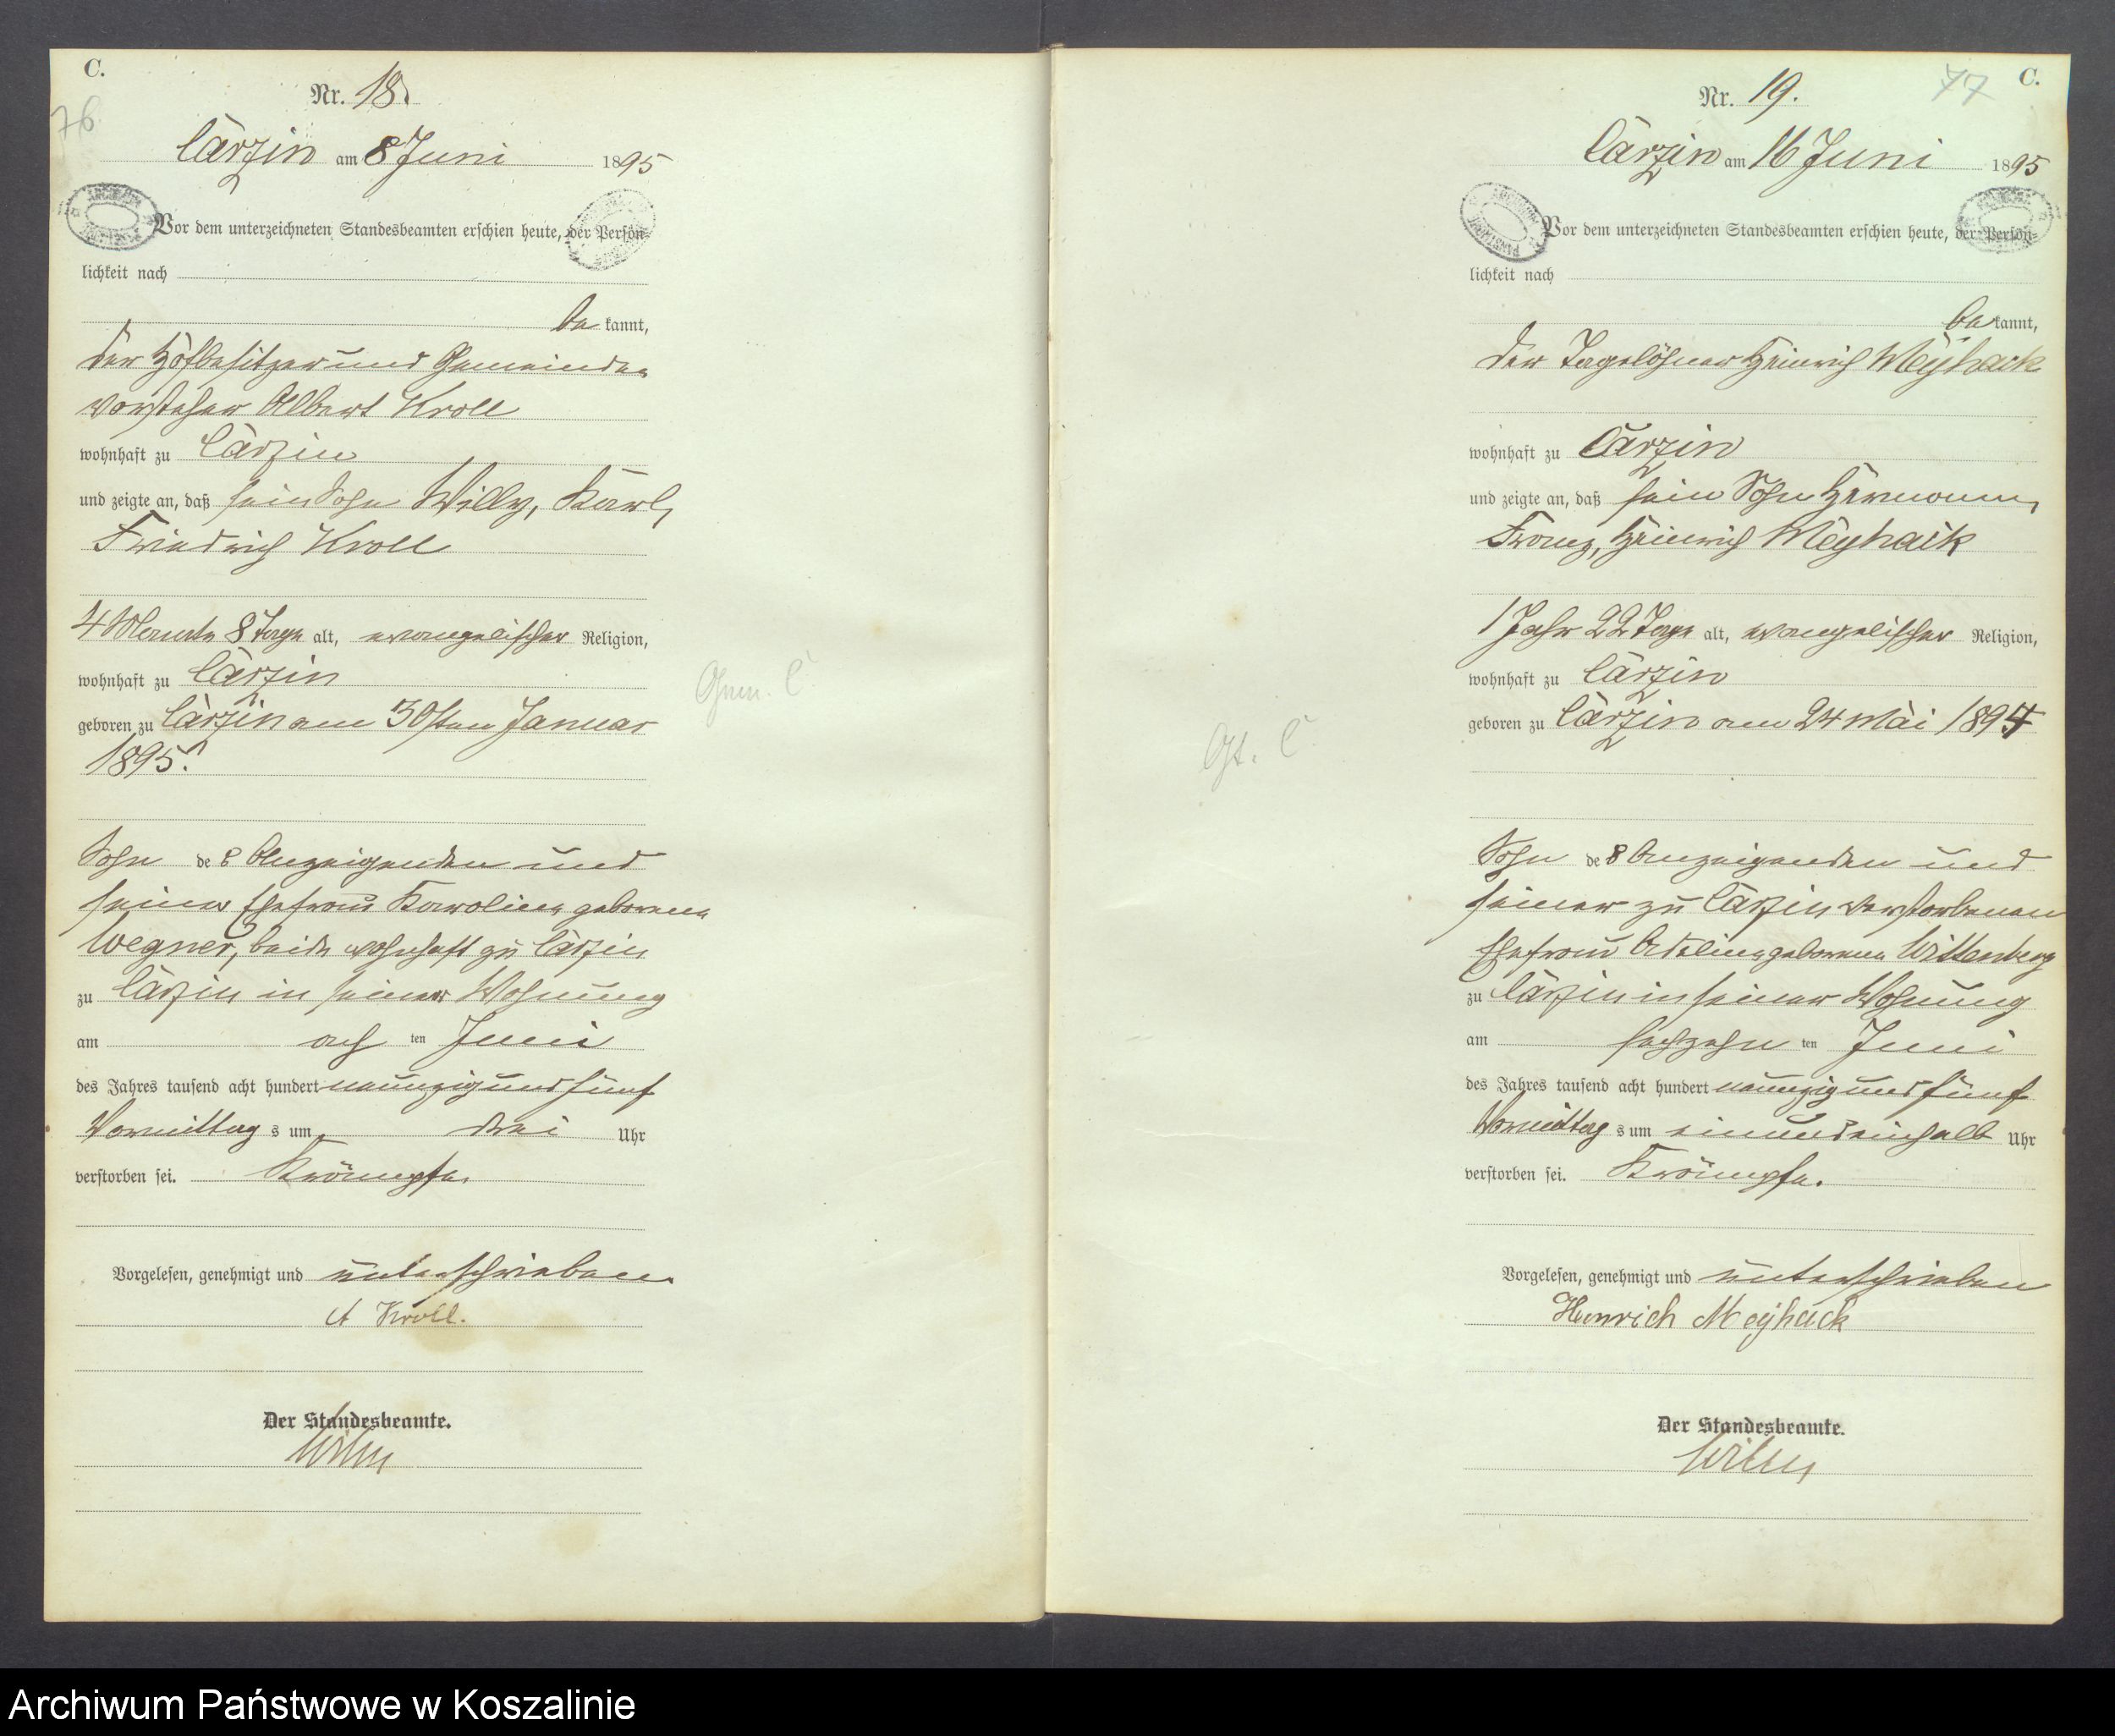 C.
76
Nr. 18.
Carzin am 8 Juni 1895
Vor dem unterzeichneten Standesbeamten erschien heute, der Persön-
lichkeit nach
bekannt,
der Hofbesitzer und Gemeinde
vorsteher Albert Kroll
wohnhaft zu Carzin
und zeigte an, daß sein Sohn Willy, Karl,
Friedrich Kroll
4 Monate 8 Tage alt, evangelischer Religion,
wohnhaft zu Carzin
geboren zu Carzin am 30sten Januar
1895.
Sohn des Anzeigenden und
seiner Ehefrau Karoline geborene
Wegner, beide wohnhaft zu Carzin
zu Carzin in seiner Wohnung
am achten Juni
des Jahres tausend acht hundert neunzig und fünf
Vormittags um drei Uhr
verstorben sei. Krämpfe.
Vorgelesen, genehmigt und unterschrieben
A Kroll.
Der Standesbeamte.
Gem. C
77
C.
Nr. 19.
Carzin am 16 Juni 1895
Vor dem unterzeichneten Standesbeamten erschien heute, der Persön-
lichkeit nach
bekannt,
der Tagelöhner Heinrich Meyhack
wohnhaft zu Carzin
und zeigte an, daß sein Sohn Hermann,
Franz, Heinrich Meyhack
1 Jahr 22 Tage alt, evangelischer Religion,
wohnhaft zu Carzin
geboren zu Carzin am 24 Mai 1894
Gt. C
Sohn des Anzeigenden und
seiner zu Carzin verstorbenen
Ehefrau Adeline geborene Wittenberg
zu Carzin in seiner Wohnung
am sechzehnten Juni
des Jahres tausend acht hundert neunzig und fünf
Vormittags um einundeinhalb Uhr
verstorben sei. Krämpfe.
Vorgelesen, genehmigt und unterschrieben
Heinrich Meyhack
Der Standesbeamte.
Archiwum Państwowe w Koszalinie